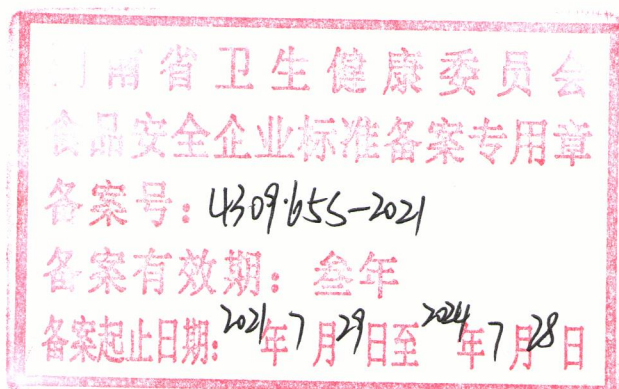 南省卫生健康委员会
食品安全企业标准备案专用章
备案号：4309·655-2021
备案有效期：叁年
备案起止日期：2021年7月29日至2024年7月28日